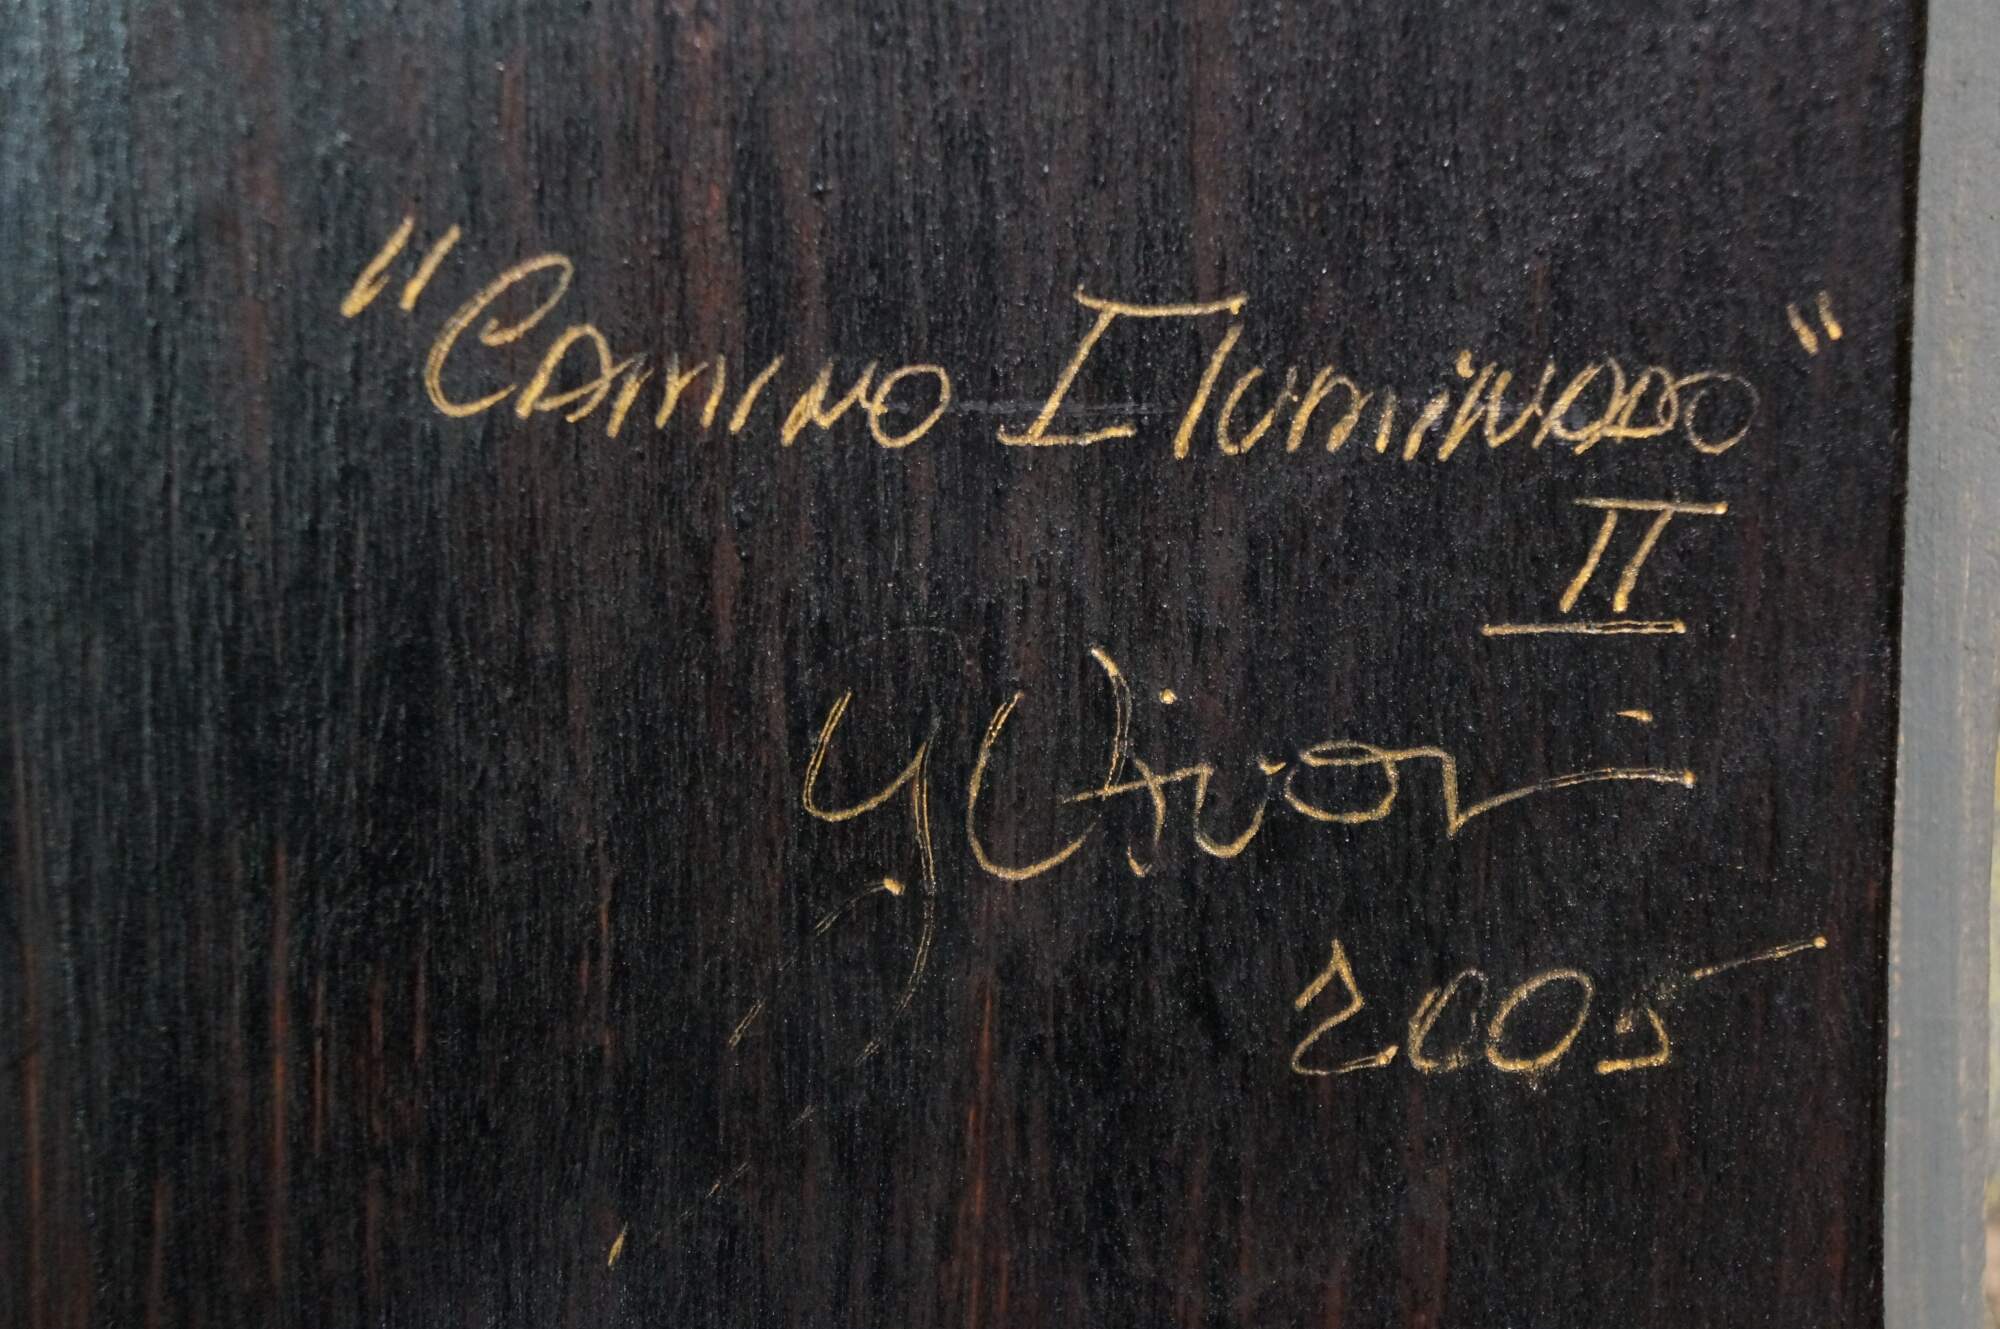 "Camino Iluminado"
II
2005